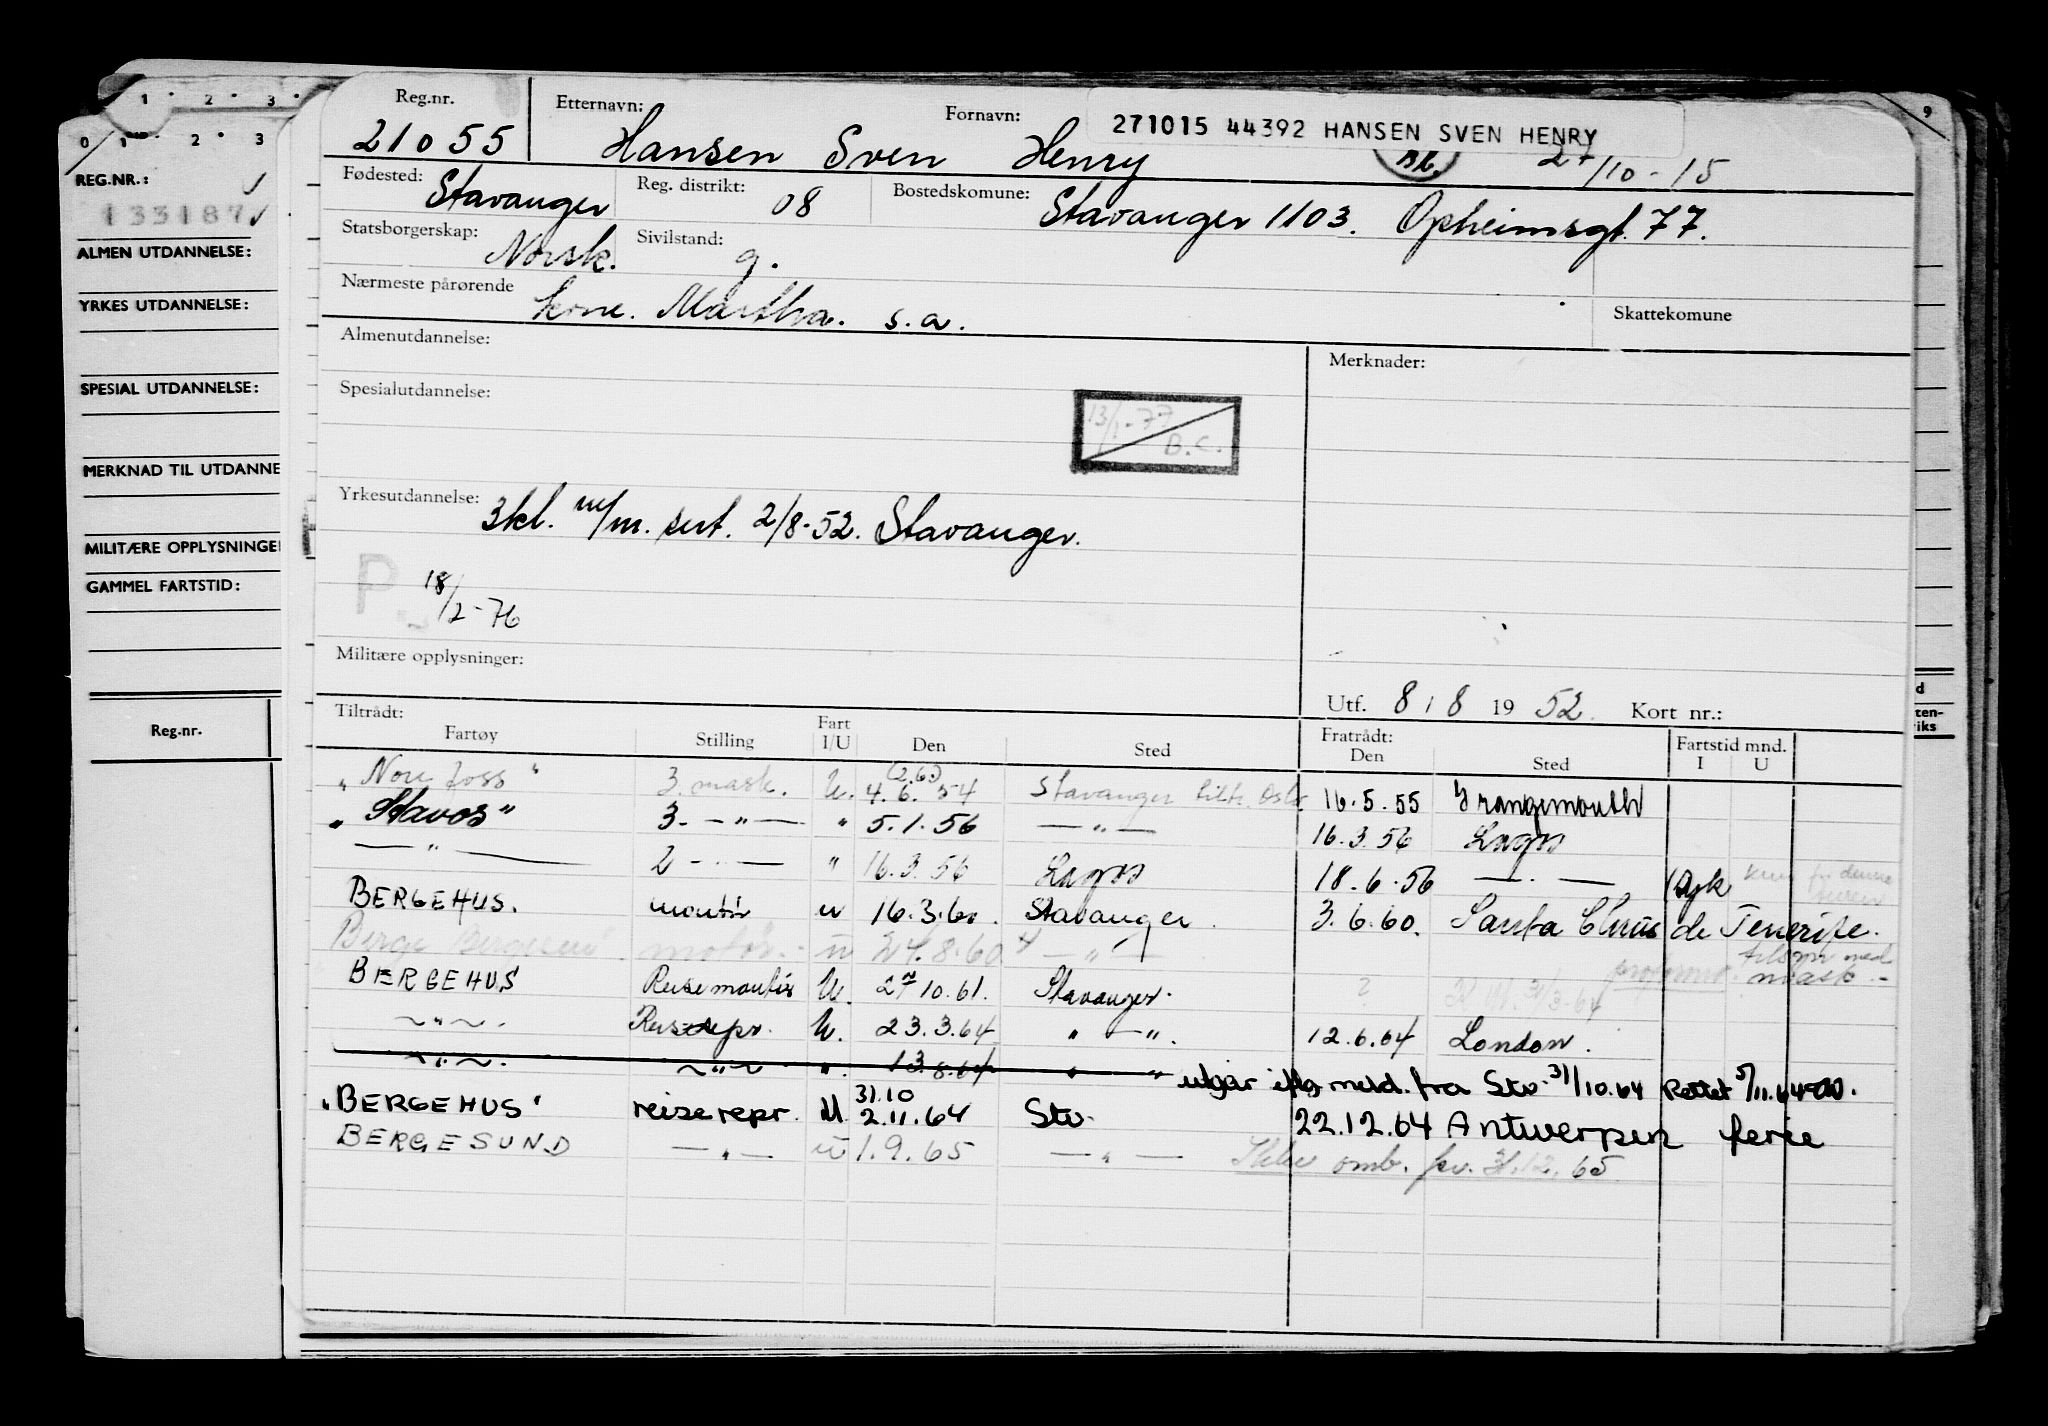 1 · 2 · 3 ·
0 1 2 3
REG.NR.:
133187
ALMEN UTDANNELSE:
YRKES UTDANNELSE:
SPESIAL UTDANNELSE:
MERKNAD TIL UTDANNE
MILITÆRE OPPLYSNINGE
GAMMEL FARTSTID:
Reg.nr.
9
d
ten-
iks
Reg.nr. Etternavn: Fornavn: 271015 44392 HANSEN SVEN HENRY
21055 Hansen Sven Henry 27/10-15
Fødested: Stavanger Reg. distrikt: 08 Bostedskomune: Stavanger 1103. Opheimsgt. 77.
Statsborgerskap: Norsk. Sivilstand: g.
Nærmeste pårørende kone. Martha. s.a. Skattekomune
Almenutdannelse: Merknader:
Spesialutdannelse: 13/1-77 B.C.
Yrkesutdannelse: 3kl. m/m. sert. 2/8-52. Stavanger.
P 18/2-76
Militære opplysninger:
Utf. 8/8 1952. Kort nr.:
Tiltrådt: Fratrådt: Fartstid mnd.
Fartøy Stilling Fart I/U Den Sted Den Sted I U
(2.6.)
"Nore Foss" 3. mask. U. 4.6.54 Stavanger tiltr. Oslo 16.5.55 Grangemouth
"Stavos" 3. — " — " 5.1.56 — " — 16.3.56 Lagos
— " — 2 - — " 16.3.56 Lagos 18.6.56 — " — kun for denne
BERGEHUS. montør u 16.3.60. Stavanger 3.6.60. Santa Cruz de Tenerife.
Berge Bergesen motor. - u 24.8.60 — " — tilsm med
BERGEHUS Reisemontør U. 27 10.61. Stavanger. ? 3/3-64 mask.-
~"~. Reiserepr. U. 23.3.64 " —". 12.6.64 London.
~"~. ~"~ ". 13.8.64 " " utgår iflg meld. fra Stv. 31/10.64 Rettet 5/11.64
31.10
"BERGEHUS" reiserepr. U 2.11.64 Stv. 22.12.64 Antwerpen ferie
BERGESUND — " — u 1.9.65 — " — Ikke omb. pr. 31.12.65